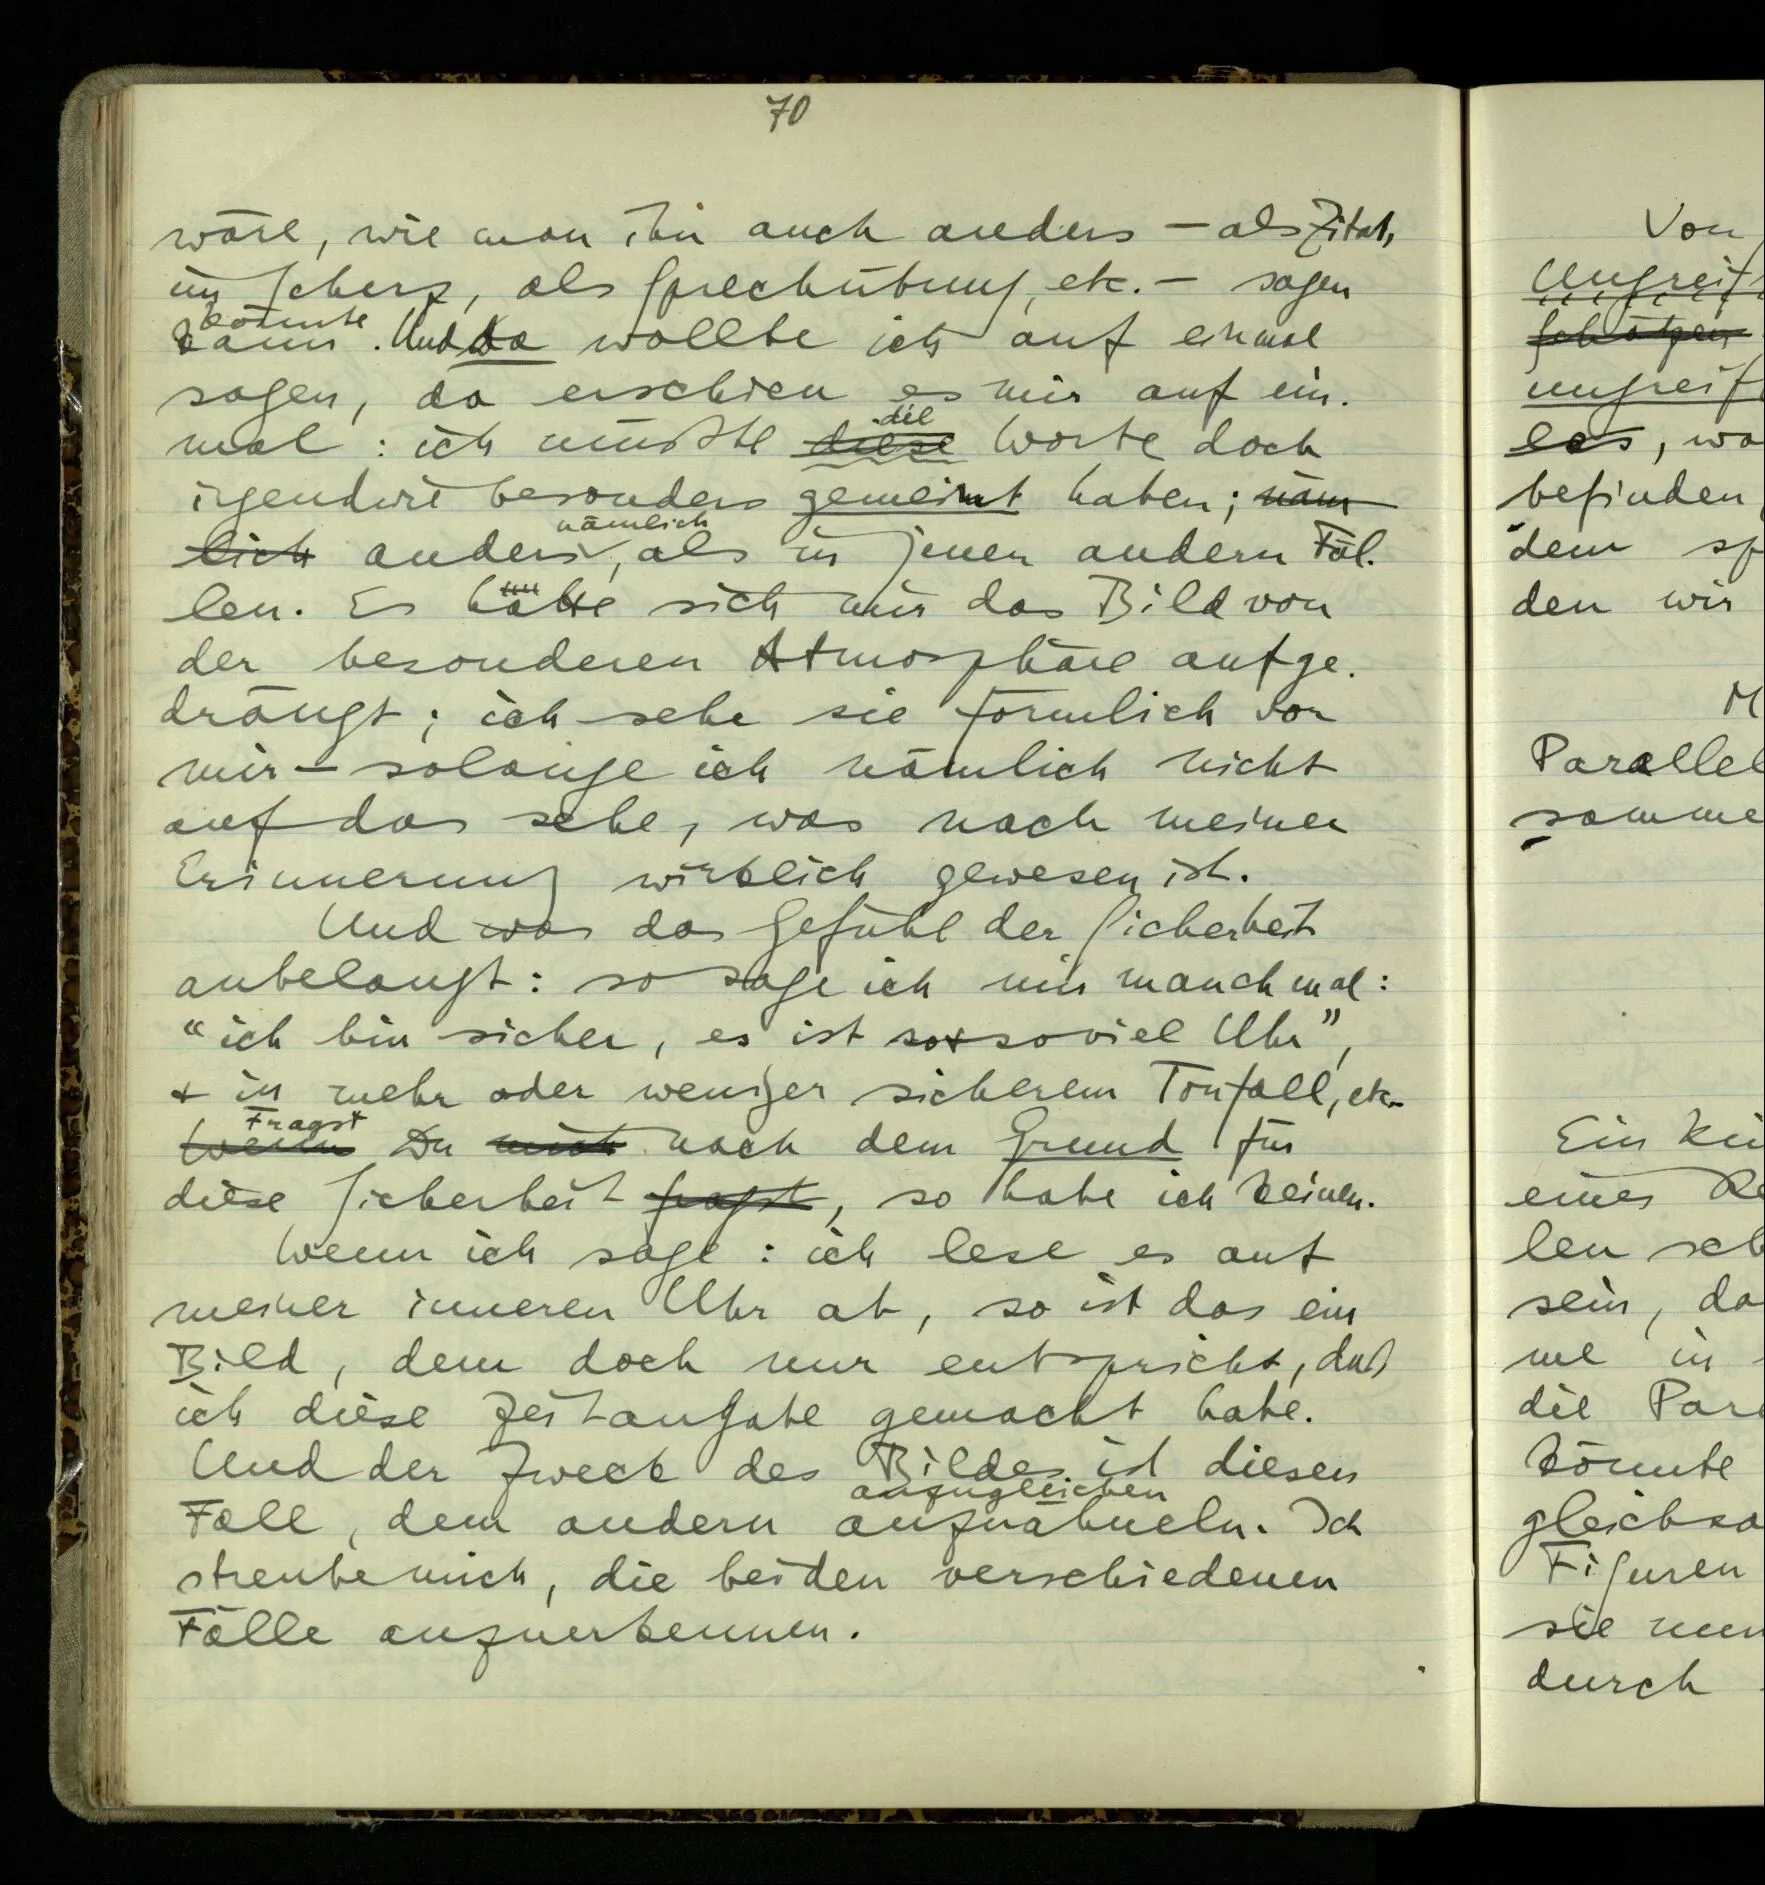 70
wäre, wie man ihn auch anders – als Zitat,
im Scherz, als Sprechübung, etc. – sagen
könnte
kann. Und da wollte ich auf einmal
sagen, da erschien es mir auf ein-
die
mal: ich müsste diese Worte doch
irgendwie besonders gemeint haben; näm
nämlich
lich anders, als in jenen andern Fäl-
len. Es hatte sich mir das Bild von
der besonderen Atmosphäre aufge-
drängt; ich sehe sie förmlich vor
mir – solange ich nämlich nicht
auf das sehe, was nach meiner
Erinnerung wirklich gewesen ist.
Und was das Gefühl der Sicherheit
anbelangt: so sage ich mir manchmal:
"ich bin sicher, es ist soviel Uhr",
+ in mehr oder weniger sicherem Tonfall, etc.
Fragst
Wenn Du mich nach dem Grund für
diese Sicherheit fragst, so habe ich keinen.
Wenn ich sage: ich lese es auf
meiner inneren Uhr ab, so ist das ein
Bild, dem doch nur entspricht, daß
ich diese Zeitangabe gemacht habe.
Und der Zweck des Bildes ist diesen
anzugleichen
Fall, dem andern anzuähneln. Ich
streube mich, die beiden verschiedenen
Fälle anzuerkennen.
Von
Ungreif
schätzen
ungreif
les, wa
befinden,
dem sp
den wir
M
Parallel
samme
Ein
eines Re
len sch
sein, da
me in
die Par
könnte
gleichsa
Figuren
sie nun
durch